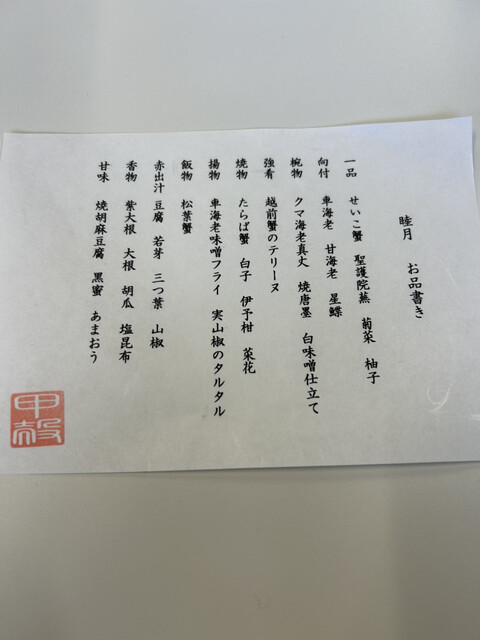 睦月　お品書き
一品　せいこ蟹　聖護院蕪　菊菜　柚子
向付　車海老　甘海老　星鰈
椀物　クマ海老真丈　焼唐墨　白味噌仕立て
強肴　越前蟹のテリーヌ
焼物　たらば蟹　白子　伊予柑　菜花
揚物　車海老味噌フライ　実山椒のタルタル
飯物　松葉蟹
赤出汁　豆腐　若芽　三つ葉　山椒
香物　紫大根　大根　胡瓜　塩昆布
甘味　焼胡麻豆腐　黒蜜　あまおう
甲殻